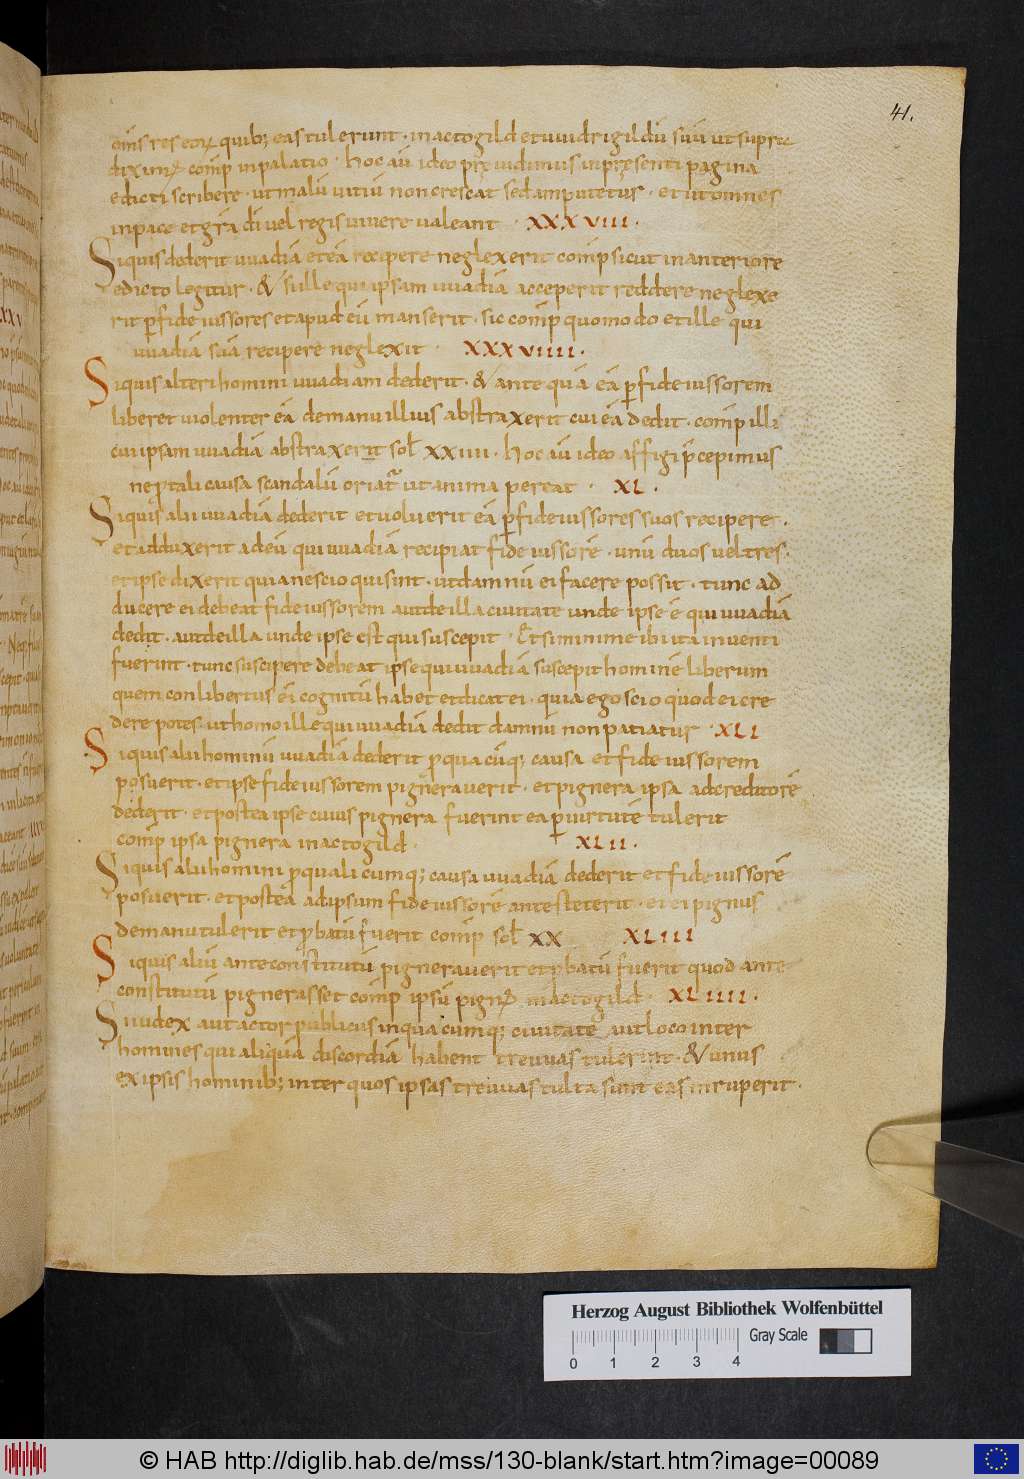 41.
om̄s res eorꝝ quib; eas tulerunt · in actogild et uuidrigildū suū ut supra
diximꝰ comp̄ in palatio · hoc aū ideo pręuidimus in pręsenti pagina
edicti scribere · ut malū uitiū non crescat sed amputetur · et ut omnes
in pace et grā dī uel regis uiuere ualeant · XXXVIII ·
Siquis dederit uuadiā et eā recipere neglexerit comp̄ sicut in anteriore
edicto legitur · & si ille qui ipsam uuadiā acceperit reddere neglexe
rit ꝑ fideiussores et apud eū manserit · sic comp̄ quomodo et ille qui
uuadiā suā recipere neglexit · XXXVIIII ·
Siquis alteri homini uuadiam dederit · & ante quā eā ꝑ fideiussorem
liberet uiolenter eā de manu illius abstraxerit cui eā dedit · comp̄ illi
cui ipsam uuadiā abstraxerit sol̄ XXIIII · hoc aū ideo affigi p̄cepimus
ne p tali causa scandalū oriatr̄ ut anima pereat · XL ·
Siquis alii uuadiā dederit et uoluerit eā ꝑ fideiussores suos recipere ·
et adduxerit ad eū qui uuadiā recipiat fideiussorē · unū duos uel tres ·
et ipse dixerit quia nescio qui sint · ut damnū ei facere possit · tunc ad
ducere ei debeat fideiussorem aut de illa ciuitate unde ipse ē qui uuadiā
dedit · aut de illa unde ipse est qui suscepit · Et si minime ibi ita inuenti
fuerint · tunc suscipere debeat ipse qui uuadiā suscepit hominē liberum
quem conlibertus ei cognitū habet et dicat ei · quia ego scio quod ei cre
dere potes · ut homo ille qui uuadiā dedit damnū non patiatur · XLI
Siquis alii hominū uuadiā dederit ꝓ qua cūq; causa et fideiussorem
posuerit · et ipse fideiussorem pignerauerit · et pignera ipsa ad creditorē
dederit · et postea ipse cuius pignera fuerint ea ꝑ uirtutē tulerit
comp̄ ipsa pignera in actogild · XLII ·
Siquis alii homini ꝓ quali cumq; causa uuadiā dederit et fideiussorē
posuerit · et postea ad ipsum fideiussorē antesteterit · et ei pignus
de manu tulerit et ꝓbatū fuerit comp̄ sol̄ XX XLIII
Siquis aliū ante constitutū pignerauerit et ꝓbatū fuerit quod ante
constitutū pignerasset comp̄ ipsū pignꝰ in actogild · XLIIII ·
Si iudex aut actor publicus in qua cumq; ciuitate aut loco inter
homines qui aliquā discordiā habent treuuas tulerint · & unus
ex ipsis hominib; inter quos ipsas treuuas tulta sunt eas inruperit ·
Herzog August Bibliothek Wolfenbüttel
Gray Scale
0 1 2 3 4
© HAB http://diglib.hab.de/mss/130-blank/start.htm?image=00089